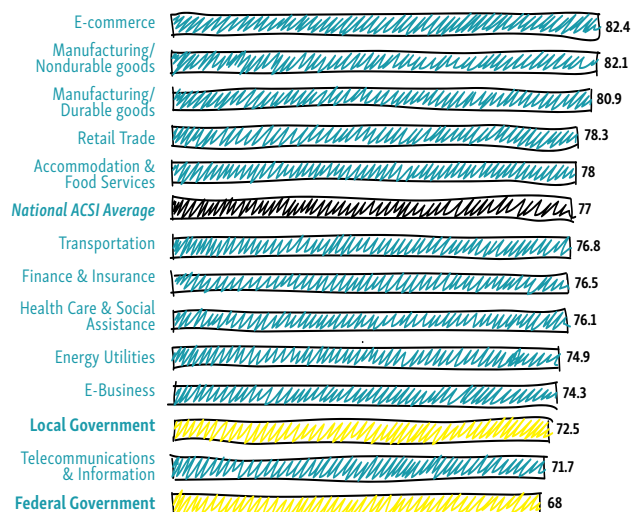 E-commerce 82.4
Manufacturing/
Nondurable goods 82.1
Manufacturing/
Durable goods 80.9
Retail Trade 78.3
Accommodation &
Food Services 78
National ACSI Average 77
Transportation 76.8
Finance & Insurance 76.5
Health Care & Social
Assistance 76.1
Energy Utilities 74.9
E-Business 74.3
Local Government 72.5
Telecommunications
& Information 71.7
Federal Government 68